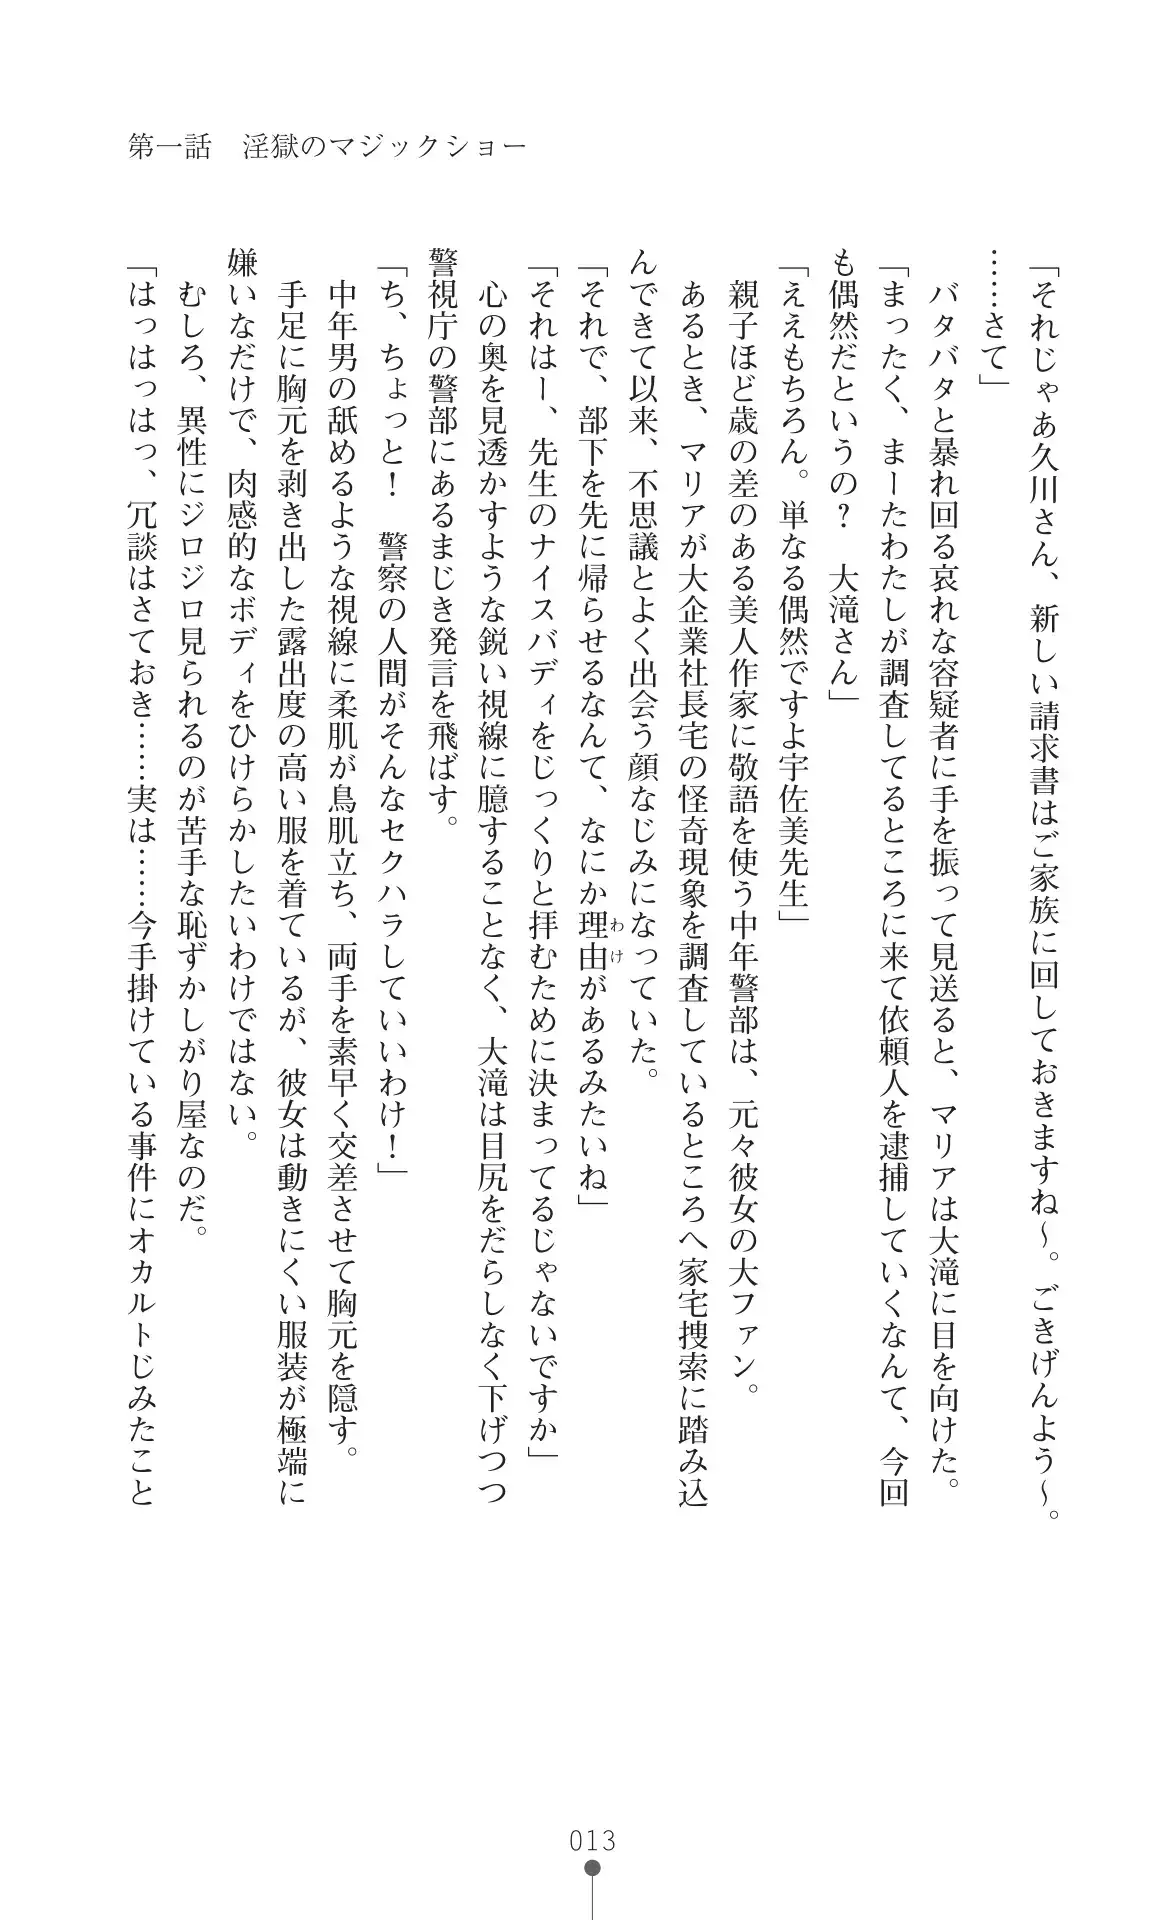 第一話　淫獄のマジックショー
「それじゃあ久川さん、新しい請求書はご家族に回しておきますね～。ごきげんよう～。
……さて」
　バタバタと暴れ回る哀れな容疑者に手を振って見送ると、マリアは大滝に目を向けた。
「まったく、まーたわたしが調査してるところに来て依頼人を逮捕していくなんて、今回
も偶然だというの？　大滝さん」
「ええもちろん。単なる偶然ですよ宇佐美先生」
　親子ほど歳の差のある美人作家に敬語を使う中年警部は、元々彼女の大ファン。
　あるとき、マリアが大企業社長宅の怪奇現象を調査しているところへ家宅捜索に踏み込
んできて以来、不思議とよく出会う顔なじみになっていた。
「それで、部下を先に帰らせるなんて、なにか理由があるみたいね」
わけ
「それはー、先生のナイスバディをじっくりと拝むために決まってるじゃないですか」
　心の奥を見透かすような鋭い視線に臆することなく、大滝は目尻をだらしなく下げつつ
警視庁の警部にあるまじき発言を飛ばす。
「ち、ちょっと！　警察の人間がそんなセクハラしていいわけ！」
　中年男の舐めるような視線に柔肌が鳥肌立ち、両手を素早く交差させて胸元を隠す。
　手足に胸元を剥き出した露出度の高い服を着ているが、彼女は動きにくい服装が極端に
嫌いなだけで、肉感的なボディをひけらかしたいわけではない。
　むしろ、異性にジロジロ見られるのが苦手な恥ずかしがり屋なのだ。
「はっはっはっ、冗談はさておき……実は……今手掛けている事件にオカルトじみたこと
013